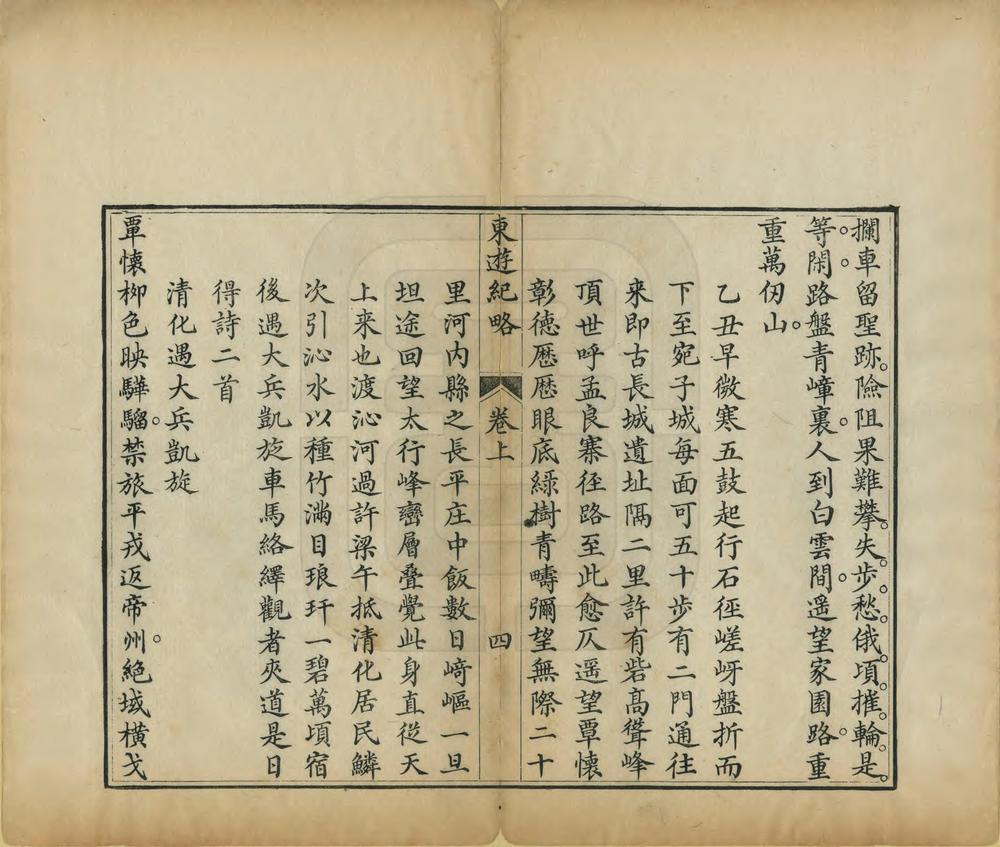 攔車留聖跡險阻果難攀失步愁俄頃摧輪是
等閑路盤青嶂裏人到白雲間遥望家園路重
重萬仞山
乙丑早微寒五鼓起行石徑嵯岈盤折而
下至宛子城每面可五十步有二門通往
来即古長城遺址隔二里許有砦高聳峰
頂世呼孟良寨径路至此愈仄遥望覃懷
彰德歷歷眼底綠樹青疇彌望無際二十
東遊紀略 卷上 四
里河内縣之長平庄中飯數日崎嶇一旦
坦途回望太行峰巒層叠覺此身直從天
上来也渡沁河過許梁午抵清化居民鱗
次引沁水以種竹滿目琅玕一碧萬頃宿
後遇大兵凱旋車馬絡繹觀者夾道是日
得詩二首
清化遇大兵凱旋
覃懷柳色映驊騮禁旅平戎返帝州絕域橫戈